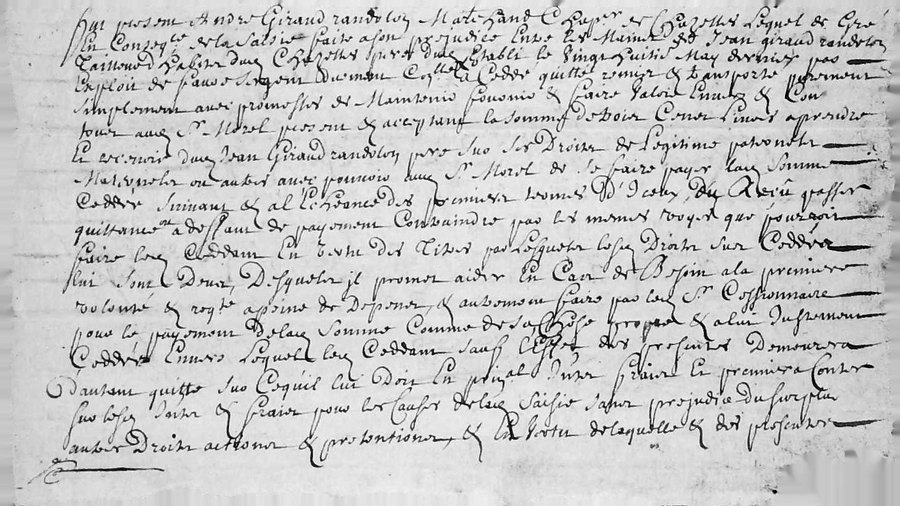 fut présent André Giraud randolon Marchand Chaper de Chazettes lequel de Gré
En Conseqce de la Saisie faite a son prejudice Entre les Mains de Jean giraud randolon
habitt dud Chazettes père dud Etabli le Vingt huitié May dernier par
Exploit de faure Sergent duement Collé a Cedde quitte remis & transporte purement
Simplement avec promesses de Maintenir fournir & faire Valoir Envers & Con
tous aud Sr Morel present & acceptant la somme de trois Cenet Livres a prendre
Et recevoir dud Jean Giraud randolon pere sur ses Droits de Legitime paternels
Maternels ou autres avec pouvoir aud Sr Morel de se faire payer lad Somme
Ceddée Suivant & al Echeance des premiers termes D'Iceux, Du Recu passer
quittance a deffaut de payement Contraindre par les memes voyes que pourroit
faire led Ceddant En Vertu des Titres par Lesquels lesd Droits sur Ceddés
lui sont Deus, Desquels il promet aider En Cas de Besoin a la premiere
volonté & reqte a peine de Depens, & autrement faire par led Sr Cessionnaire
pour le payement delad Somme Comme de sa Chose propre & a lui Justement
Ceddée Envers Lequel led Ceddant sauf l'Effet des presentes Demeurera
Dautant quitte sur Cequil lui Doit En prinal Inter fraier Et premiera Conter
sur lesd Inter & fraier pour les Causes delad Saisie sans prejudice du surplus
autres Droits actions & pretentions, & En Vertu delaquelle & des presentes